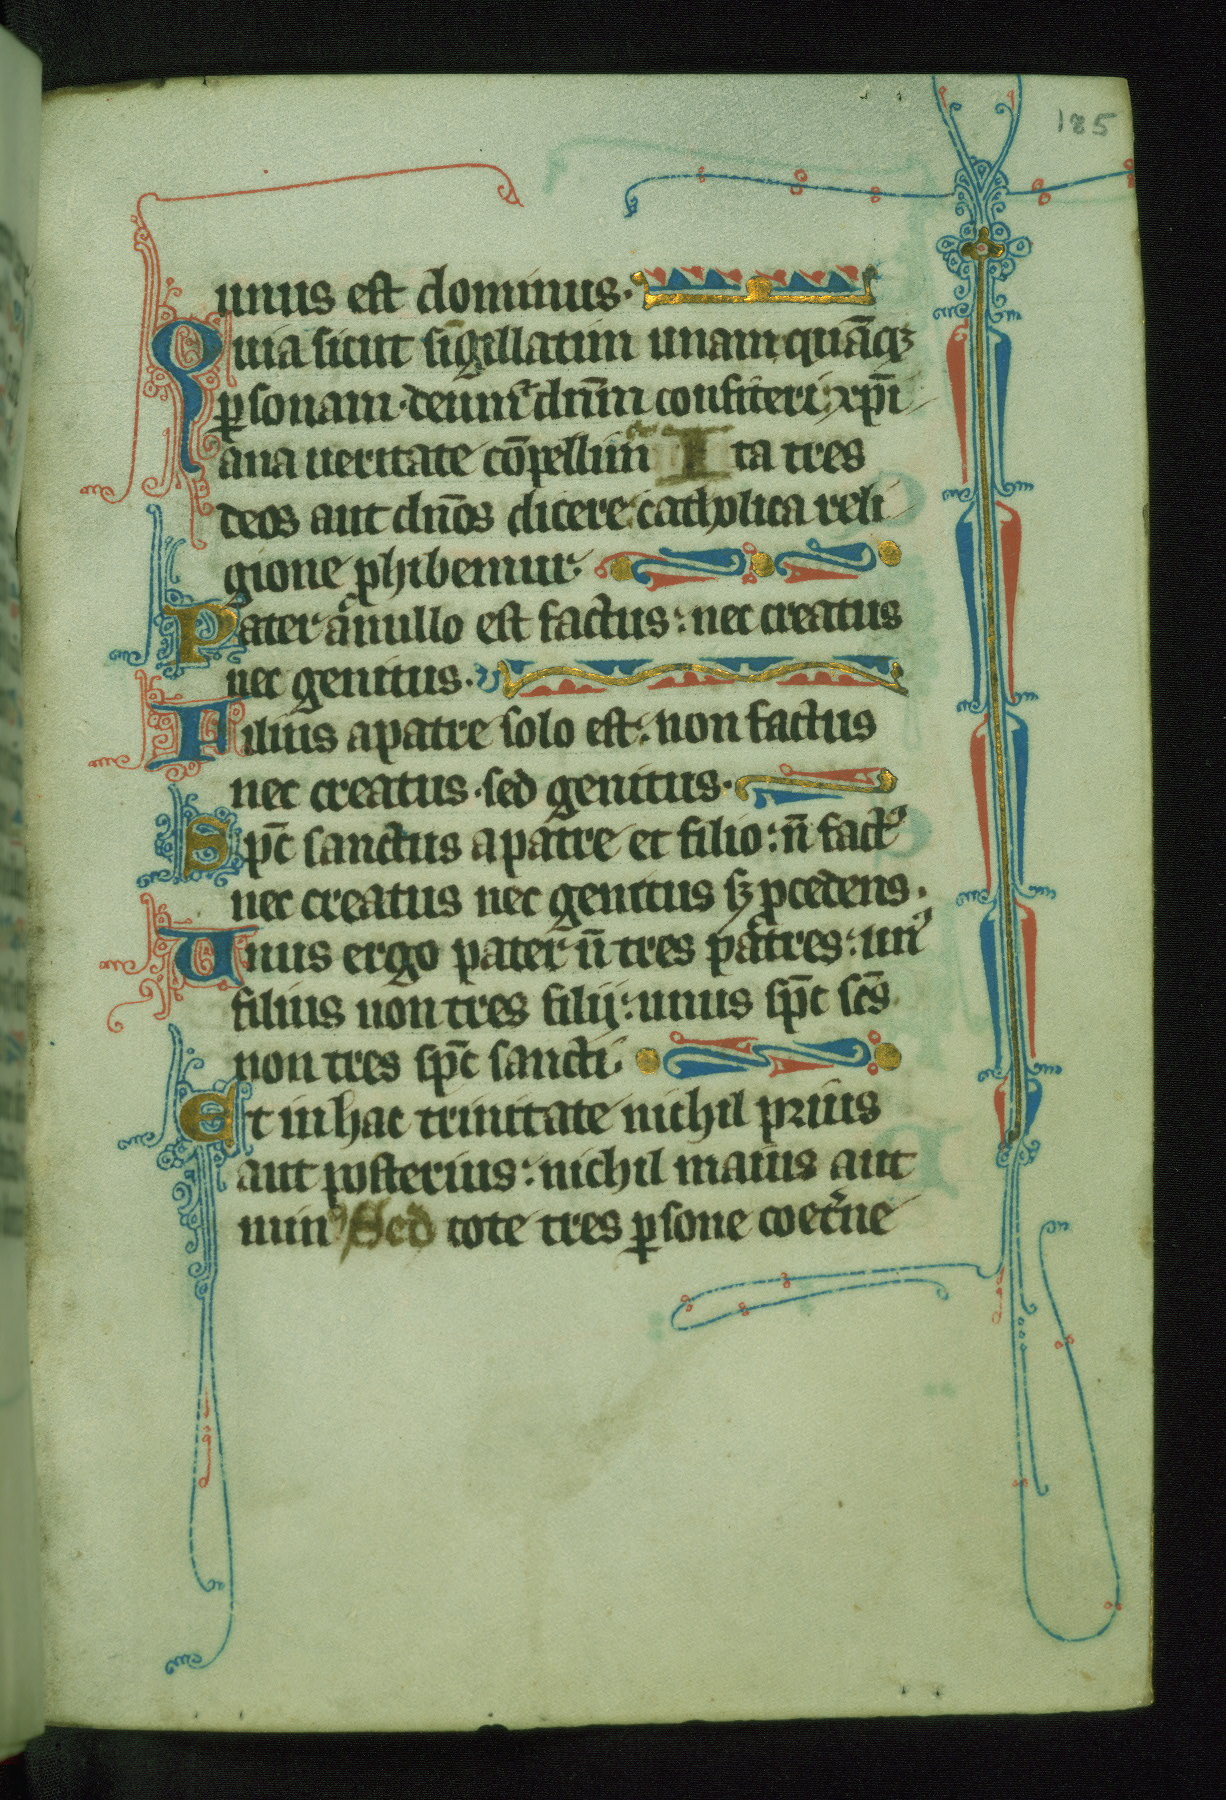 185
unus est dominus.
Quia sicut sīgillatim unam quāqꝫ
ꝑsonam deum ⁊ dn̄m confiteri xp̄i
ana ueritate cōpellimᷣ Ita tres
deos aut dn̄os dicere catholica reli
gione ꝓhibemur.
Pater a nullo est factus: nec creatus
nec genitus.
Filius a patre solo est: non factus
nec creatus. sed genitus.
Sp̄c sanctus a patre et filio: n̄ factꝰ
nec creatus nec genitus sꝫ ꝓcedens.
Unus ergo pater n̄ tres patres: unꝰ
filius non tres filij: unus sp̄c sc̄s
non tres sp̄c sancti.
Et in hac trinitate nichil prius
aut posterius: nichil maius aut
minꝰ Sed tote tres ꝑsone coet̾ne